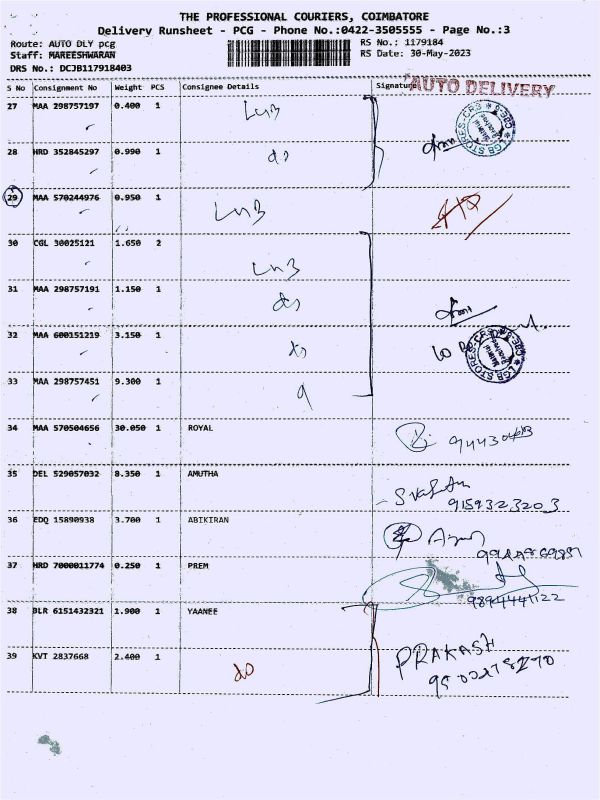 THE PROFESSIONAL COURIERS, COIMBATORE
Delivery Runsheet - PCG - Phone No.:0422-3505555 - Page No.:3
Route: AUTO DLY pcg RS No.: 1179184
Staff: MAREESHWARAN RS Date: 30-May-2023
DRS No.: DCJB117918403
S No Consignment No Weight PCS Consignee Details Signature
AUTO DELIVERY
27 MAA 298757197 0.400 1 LnB
28 HRD 352845297 0.990 1 do
29 MAA 570244976 0.950 1 LnB
30 CGL 30025121 1.650 2 LnB
31 MAA 298757191 1.150 1 do
32 MAA 600151219 3.150 1 do
33 MAA 298757451 9.300 1
34 MAA 570504656 30.050 1 ROYAL
35 DEL 529057032 8.350 1 AMUTHA
9159323203
36 EDQ 15890938 3.700 1 ABIKIRAN
37 HRD 7000011774 0.250 1 PREM
9894441122
38 BLR 6151432321 1.900 1 YAANEE
PRAKASH
39 KVT 2837668 2.400 1 do